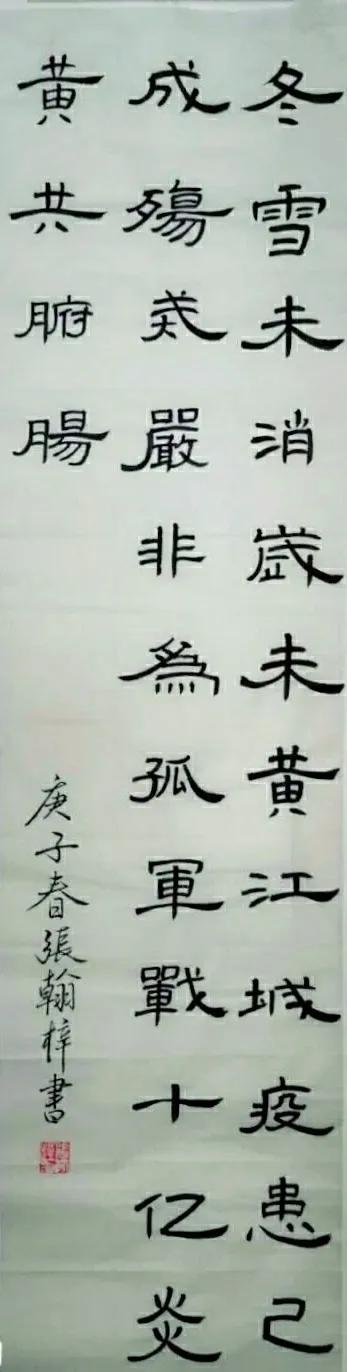 冬雪未消歲未黄江城疫患已
成殤英嚴非為孤軍戰十亿炎
黄共腑腸
庚子春張翰梓書